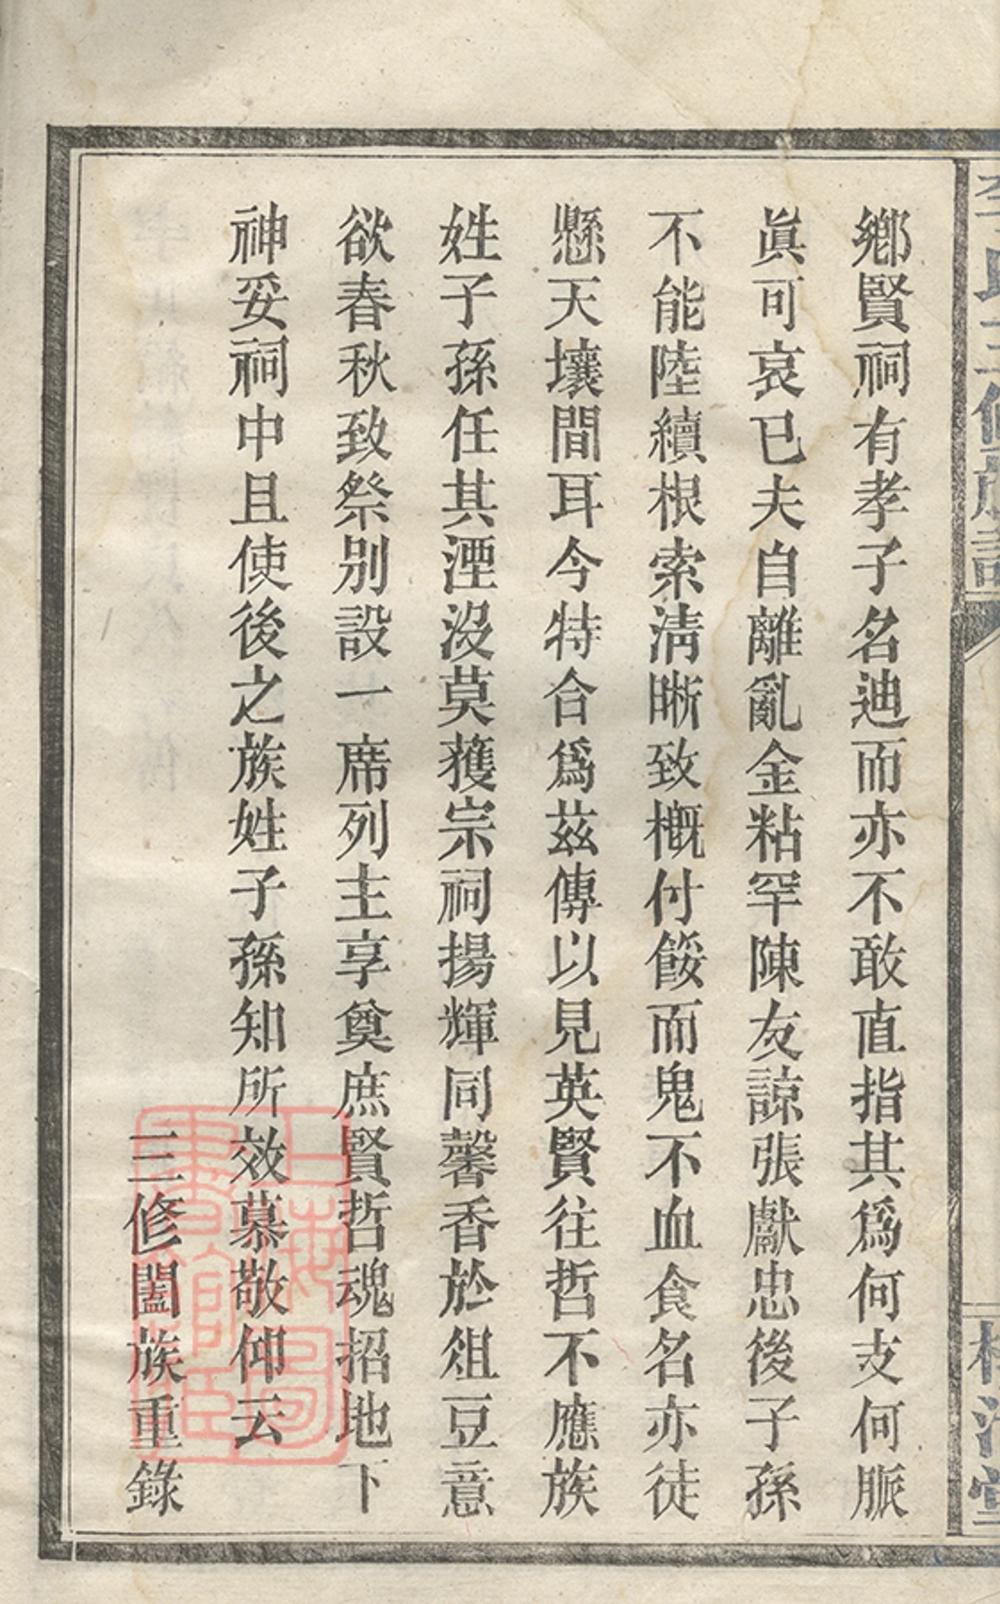 鄉賢祠有孝子名迪而亦不敢直指其爲何支何脈
眞可哀已夫自離亂金粘罕陳友諒張獻忠後子孫
不能陸續根索淸晰致概付餒而鬼不血食名亦徒
懸天壤間耳今特合爲茲傳以見英賢往哲不應族
姓子孫任其湮沒莫獲宗祠揚輝同馨香於俎豆意
欲春秋致祭別設一席列主享奠庶賢哲魂招地下
神妥祠中且使後之族姓子孫知所效慕敬仰云
三修闔族重錄
上海圖書館藏